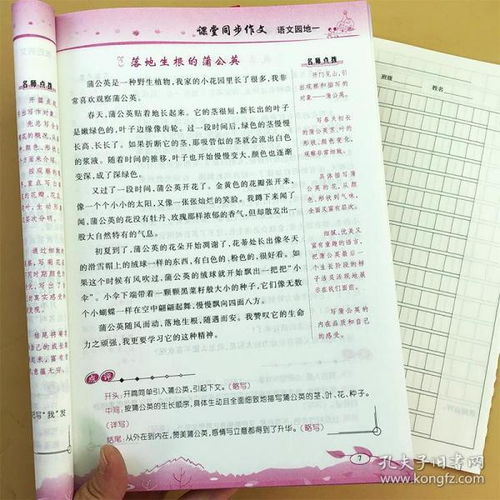 课堂同步作文 语文园地一
落地生根的蒲公英
蒲公英是一种野生植物,我家的小花园里长了很多,我非
常喜欢观察蒲公英。
春天,蒲公英贴着地长起来。它的茎很短,新长出的叶子
是嫩绿色的,叶子边缘像齿轮。过一段时间后,绿色的茎慢慢
长高、长长了。如果折断它的茎,那吸管似的茎就会流出白色
的浆液。随着时间的推移,叶子也开始慢慢变大,颜色也逐渐
变深,成了深绿色。
又过了一段时间,蒲公英开花了。金黄色的花瓣张开来,
像一个个小小的太阳,又像一张张灿烂的笑脸。我蹲下来闻了
闻,蒲公英的花没有牡丹、玫瑰那样浓郁的香气,但却散发出一
股大自然特有的气息。
初夏到了,蒲公英的花朵开始凋谢了,花蒂处长出像冬天
的滑雪帽上的绒球一样的东西,有白色的、粉色的,很好看。如
果这个时候有风吹过,蒲公英的绒球就开始飘出一把把“小
伞”。小伞下端带着一颗颗黑菜籽般大小的种子,它们像无数
个小蝴蝶一样在空中翩翩起舞,慢慢飘向四面八方。
蒲公英随风而动,落地生根,随遇而安。我赞叹它的生命
力之顽强,我更要学习它的这种精神。
点评
开头:开篇简单引入蒲公英,引起下文。(略写)
中间:按蒲公英的生长顺序,具体生动且全面细致地描写蒲公英的茎、叶、花、种子。
(详写)
结尾:从外在到内在,赞美蒲公英,感情与立意都得到了升华。(略写)
名师点拨
开门见山,引
出观察和描写的
对象——蒲公英。
写春天初长
的蒲公英茎、叶的
形状、颜色变化,
观察非常细致。
具体描写蒲
公英的花,从颜
色、形状到气味,
全面又富有层次。
细腻、优美又
富有童趣的语言,
把蒲公英最后一
个生长阶段的样
子活灵活现地展
示在我们面前。
写蒲公英的
内在品质和自己
的感受。
7
名师点拨
班级
姓名
孔夫子旧书网
www.kongfz.com